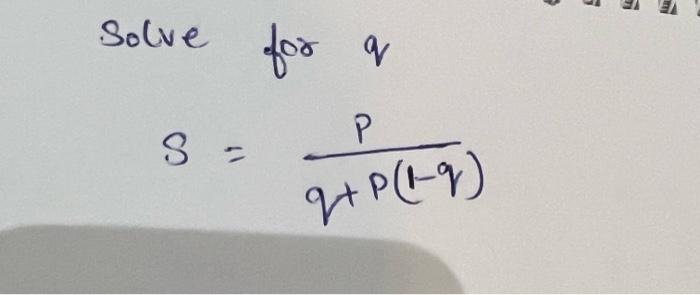 Solve for q
S = P / q+P(1-q)